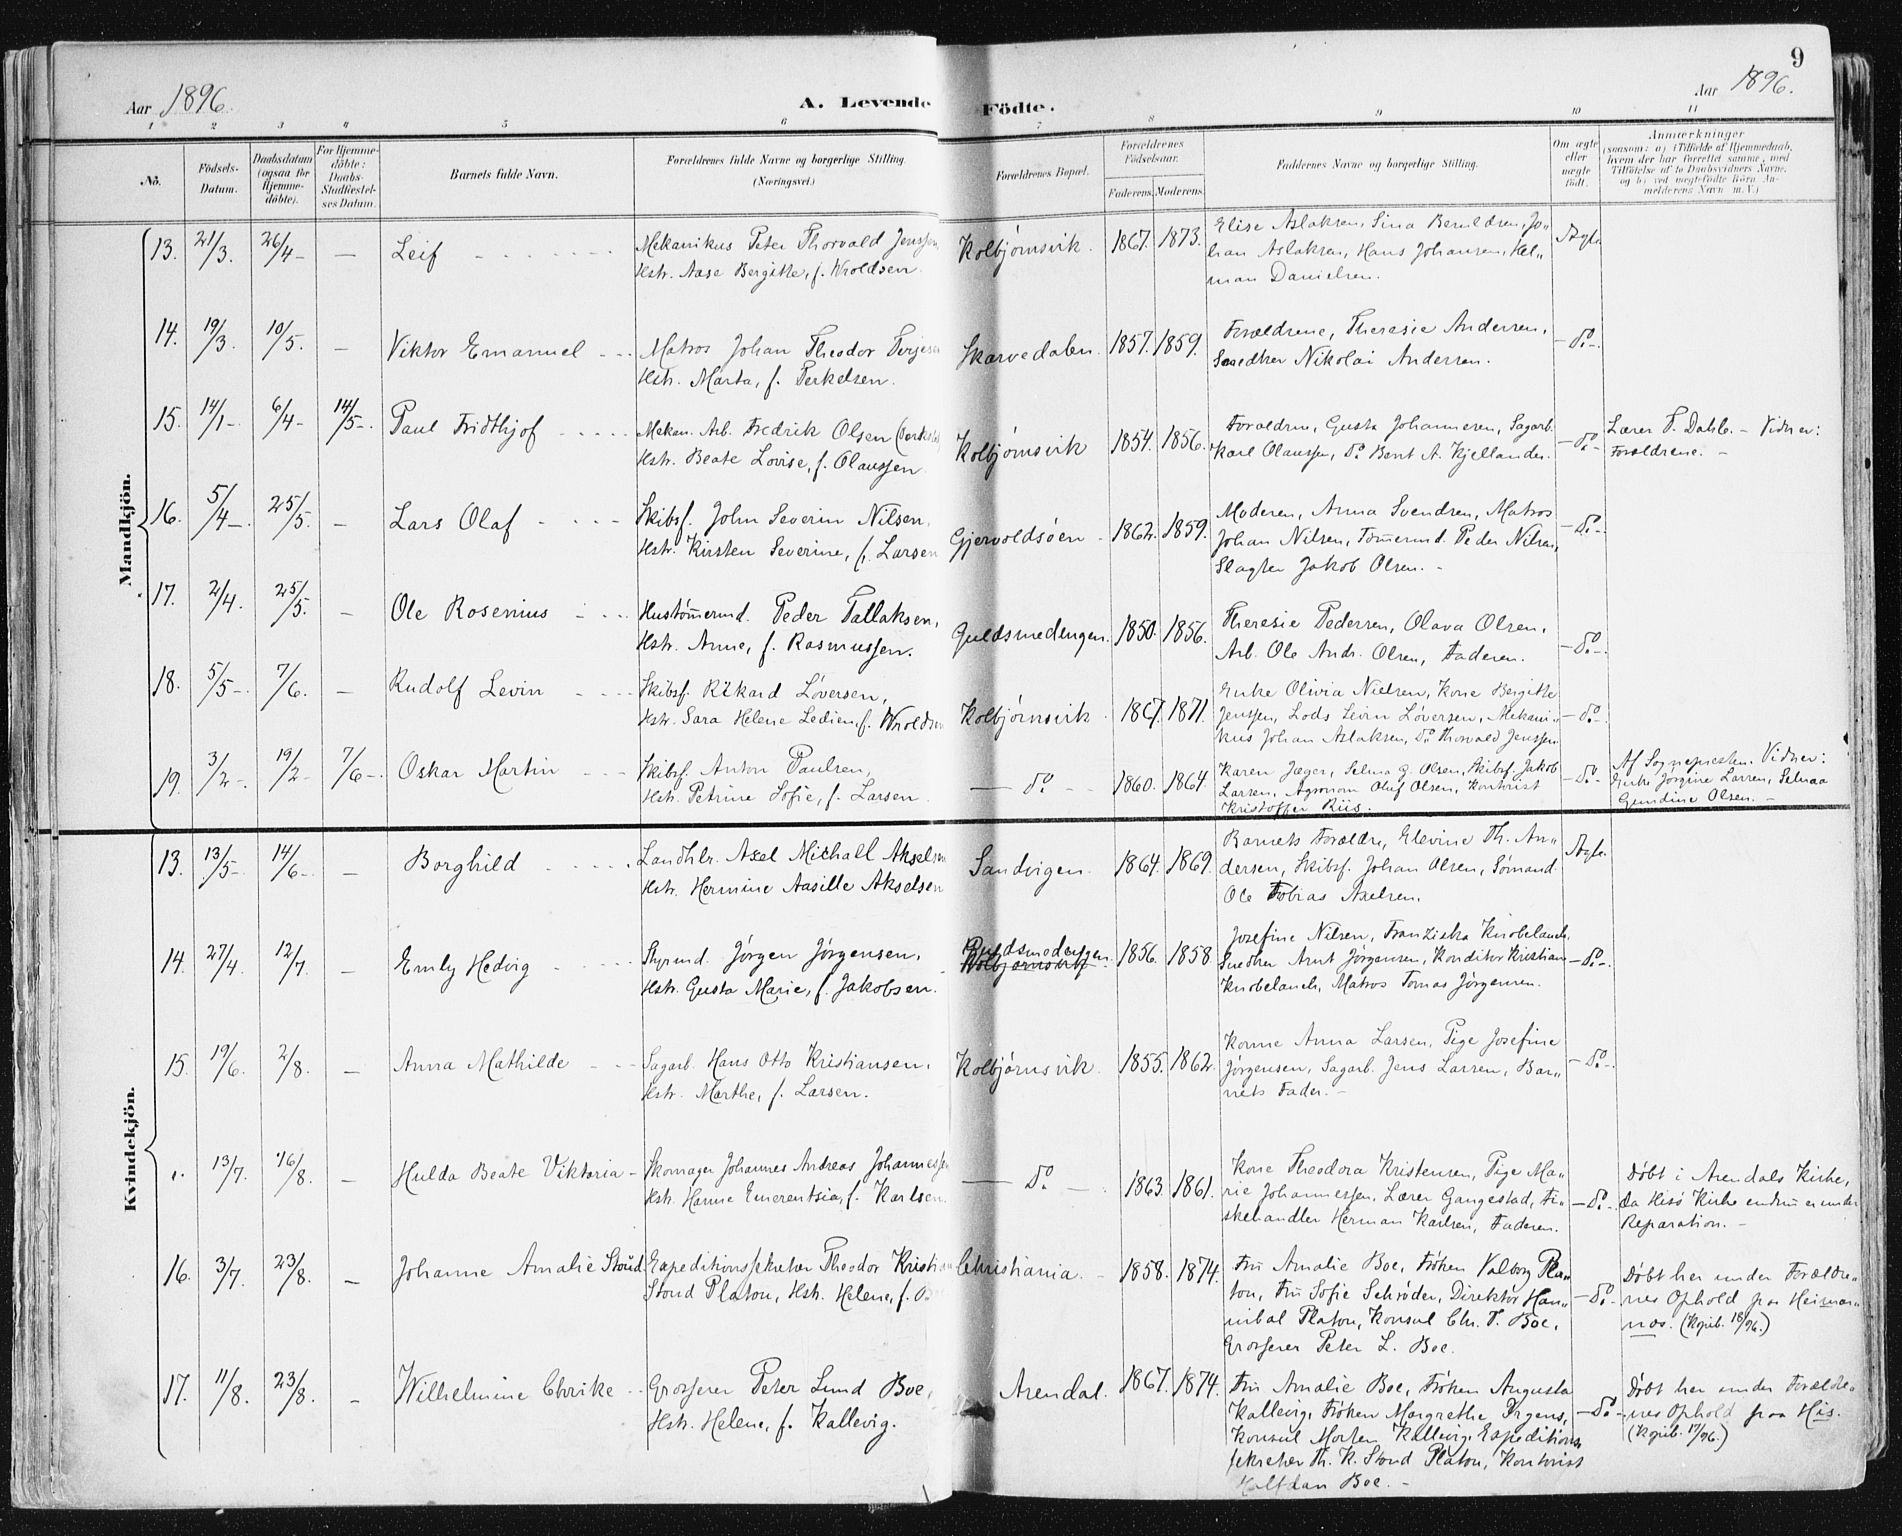 9
Aar 1896.
A. Levende Födte.
Aar 1896.
1 2 3 4 5 6 7 8 9 10 11
No.
Födsels-Datum.
Daabsdatum (ogsaa for Hjemmedöbte).
For Hjemmedöbte: Daabs-Stadfæstelses Datum.
Barnets fulde Navn.
Forældrenes fulde Navne og borgerlige Stilling. (Næringsvei.)
Forældrenes Bopæl.
Forældrenes Födselsaar.
Faderens. Moderens.
Faddernes Navne og borgerlige Stilling.
Om ægte eller uægte födt.
Anmærkninger
(saasom: a) i Tilfælde af Hjemmedaab,
hvem der har forrettet samme, med
Tilföielse af to Daabsvidners Navne.
og b) ved uægtefödte Börn An-
melderens Navn m. V.)
Mandkjön.
13. 21/3. 26/4 — Leif
Mekanikus Peter Thorvald Jenssen
Hstr. Aase Bergitte, f. Wroldsen.
Kolbjørnsvik. 1867. 1873.
Elise Aslaksen, Sina Beruldsen, Jo-
han Aslaksen, Hans Johansen, Hel-
man Danielsen.
Ægte
14. 19/3. 10/5. — Viktor Emanuel
Matros Johan Theodor Terjesen
Hstr. Marta, f. Terkelsen.
Skarvedalen. 1857. 1859.
Forældrene, Theresie Andersen,
Snedker Nikolai Andersen.
— do —
15. 14/1 6/4 14/5 Paul Fridthjof
Mekan. Arb. Fredrik Olsen
Hstr. Beate Lovise, f. Olaussen
Kolbjørnsvik 1854. 1856.
Forældrene, Gusta Johannesen, Sagarb.
Karl Olaussen, do Bernt A. Kjellander.
— do —
Lærer T. Dahle. — Vidner:
Forældrene. —
16. 5/4 25/5. — Lars Olaf
Skibsf. John Severin Nilsen,
Hstr. Kirsten Severine, f. Larsen
Gjervoldsøen 1862. 1859.
Moderen, Anna Svendsen, Matros
Johan Nilsen, Tømermd. Peder Nilsen,
Slagter Jakob Olsen. —
— do —
17. 2/4. 25/5. — Ole Rosenius
Hustømermd. Peder Tallaksen,
Hstr. Anne, f. Rasmussen.
Guldsmedengen. 1850. 1856.
Theresie Pedersen, Olava Olsen,
Arb. Ole Andr. Olsen, Faderen.
— do —
18. 5/5 7/6. — Rudolf Levin
Skibsf. Rikard Løversen,
Hstr. Sara Helene Ledien, f. Wroldsen
Kolbjørnsvik 1867. 1871.
Enke Olivia Nielsen, Kone Bergitte
Jenssen, Lods Levin Løversen, Mekani-
kus Johan Aslaksen, do Thorvald Jenssen
— do —
19. 3/2 19/2 7/6 Oskar Martin
Skibsf. Anton Paulsen,
Hstr. Petrine Sofie, f. Larsen.
— do — 1860. 1864.
Karen Jæger, Selma G. Olsen, Skibsf. Jakob
Larsen, Agronom Oluf Olsen, Kontorist
Kristoffer Riis.
— do —
Af Sognepresten. Vidner:
Enke Jørgine Larsen, Selmaa
Gundine Olsen. —
Kvindekjön.
13. 13/5 14/6 — Borghild
Landhlr. Axel Michall Akselsen
Hstr. Hermine Aasille Akselsen
Sandvigen. 1864. 1869.
Barnets Forældre, Elevine Th. An-
dersen, Skibsf. Johan Olsen, Sømand
Ole Tobias Axelsen.
Ægte
14. 27/4 12/7. — Emly Hedvig
Styrmd. Jørgen Jørgensen,
Hstr. Gusta Marie, f. Jakobsen.
Guldsmedengen
Kolbjørnsvik 1856. 1858
Josefine Nilsen, Franziska Knobelauch,
Snedker Arnt Jørgensen, Konditor Kristian
Knobelauch, Matros Tomas Jørgensen.
— do —
15. 19/6. 2/8. — Anna Mathilde
Sagarb. Hans Otto Kristiansen,
Hstr. Marthe, f. Larsen.
Kolbjørnsvik. 1855. 1862.
Konne Anna Larsen, Pige Josefine
Jørgensen, Sagarb. Jens Larsen, Bar-
nets Fader. —
— do —
13/7. 16/8. — Hulda Beate Viktoria —
Skomager Johannes Andreas Johannessen
Hstr. Hanne Emerentsia, f. Karlsen.
— do — 1863. 1861.
Kone Theodora Kristensen, Pige Ma-
rie Johannessen, Lærer Gangestad, Fi-
skehandler Herman Karlsen, Faderen.
— do —
Døbt i Arendals Kirke,
da Hisø Kirke endnu er under
Reparation. —
16. 3/7. 23/8. — Johanne Amalie Stoud
Expeditionssekretær Theodor Kristian
Stoud Platou, Hstr. Helene, f. Boe
Christiania. 1858. 1874.
Fru Amalie Boe, Frøken Valborg Pla-
tou, Fru Sofie Schrøder, Direktør Han-
nibal Platou, Konsul Chr. T. Boe,
Grosserer Peter L. Boe.
— do —
Døbt her under Forældre-
nes Ophold paa Heiman-
nas. (Kgrib. 18/96.)
17. 11/8. 23/8. — Wilhelmine Chrike
Grosserer Peter Lund Boe,
Hstr. Helene, f. Kallevig.
Arendal. 1867. 1874.
Fru Amalie Boe, Frøken Augusta
Kallevig, Frøken Margrethe Irgens,
Konsul Morten Kallevig, Expeditions-
sekretær Th. K. Stoud Platou, Kontorist
Boe. —
— do —
Døbt her under Forældre-
nes Ophold paa His.
(Kgrib. 17/96.)